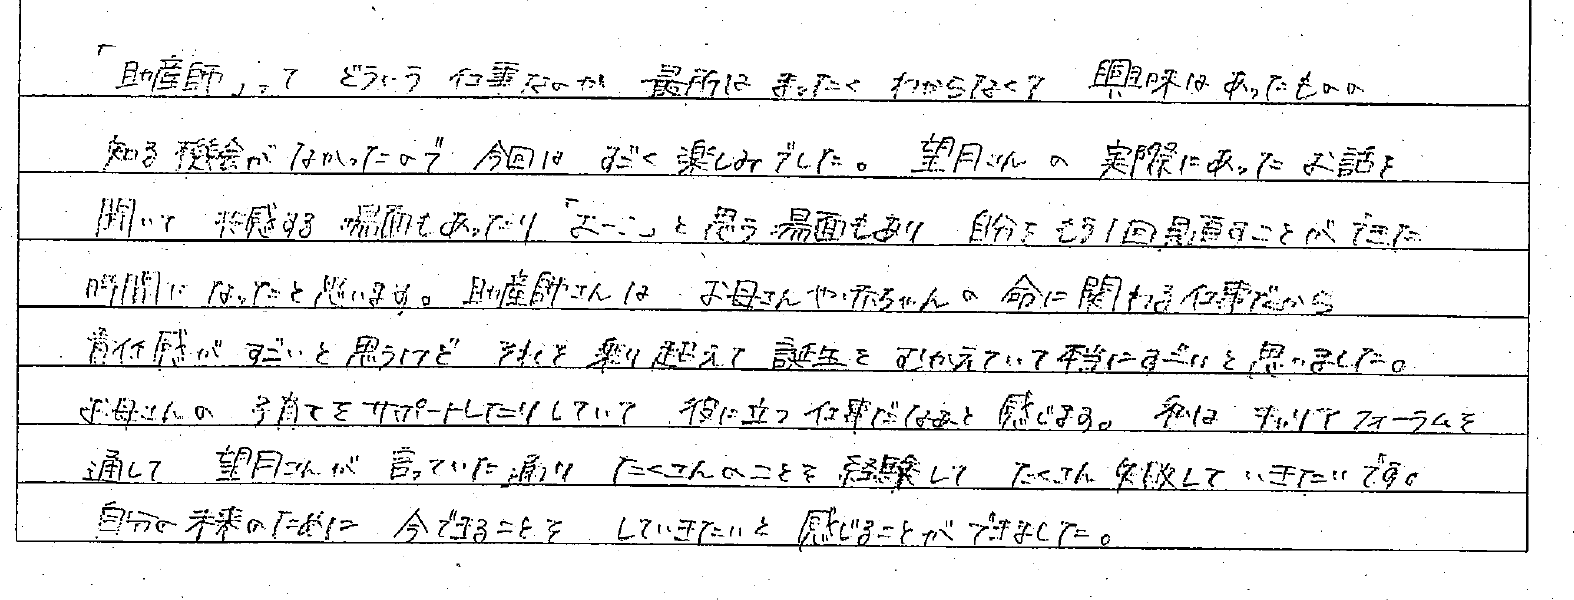 「助産師」って どういう 仕事なのか 最所は まったく わからなくて 興味は あったものの
知る 機会が なかったので 今回は すごく 楽しみでした。 望月さん の 実際にあった お話を
聞いて 共感する 場面もあったり 「おーっ」と 思う 場面もあり 自分を もう1回 見直すことが できた
時間に なったと 思います。 助産師さんは お母さんや 赤ちゃんの 命に 関わる 仕事だから
責任感が すごいと 思うけど それを 乗り 越えて 誕生を むかえていて 本当にすごいと 思いました。
お母さんの 子育てを サポートしたりしていて 役に立つ 仕事だなあと 感じます。 私は キャリアフォーラムを
通して 望月さんが 言っていた 通り たくさんのことを 経験して たくさん 失敗して いきたいです。
自分の 未来のために 今できることを していきたいと 感じることが できました。